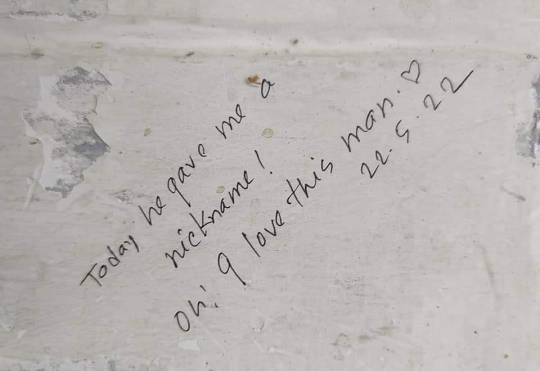 Today he gave me a
nickname!
Oh! I love this man. ♡
22.5.22